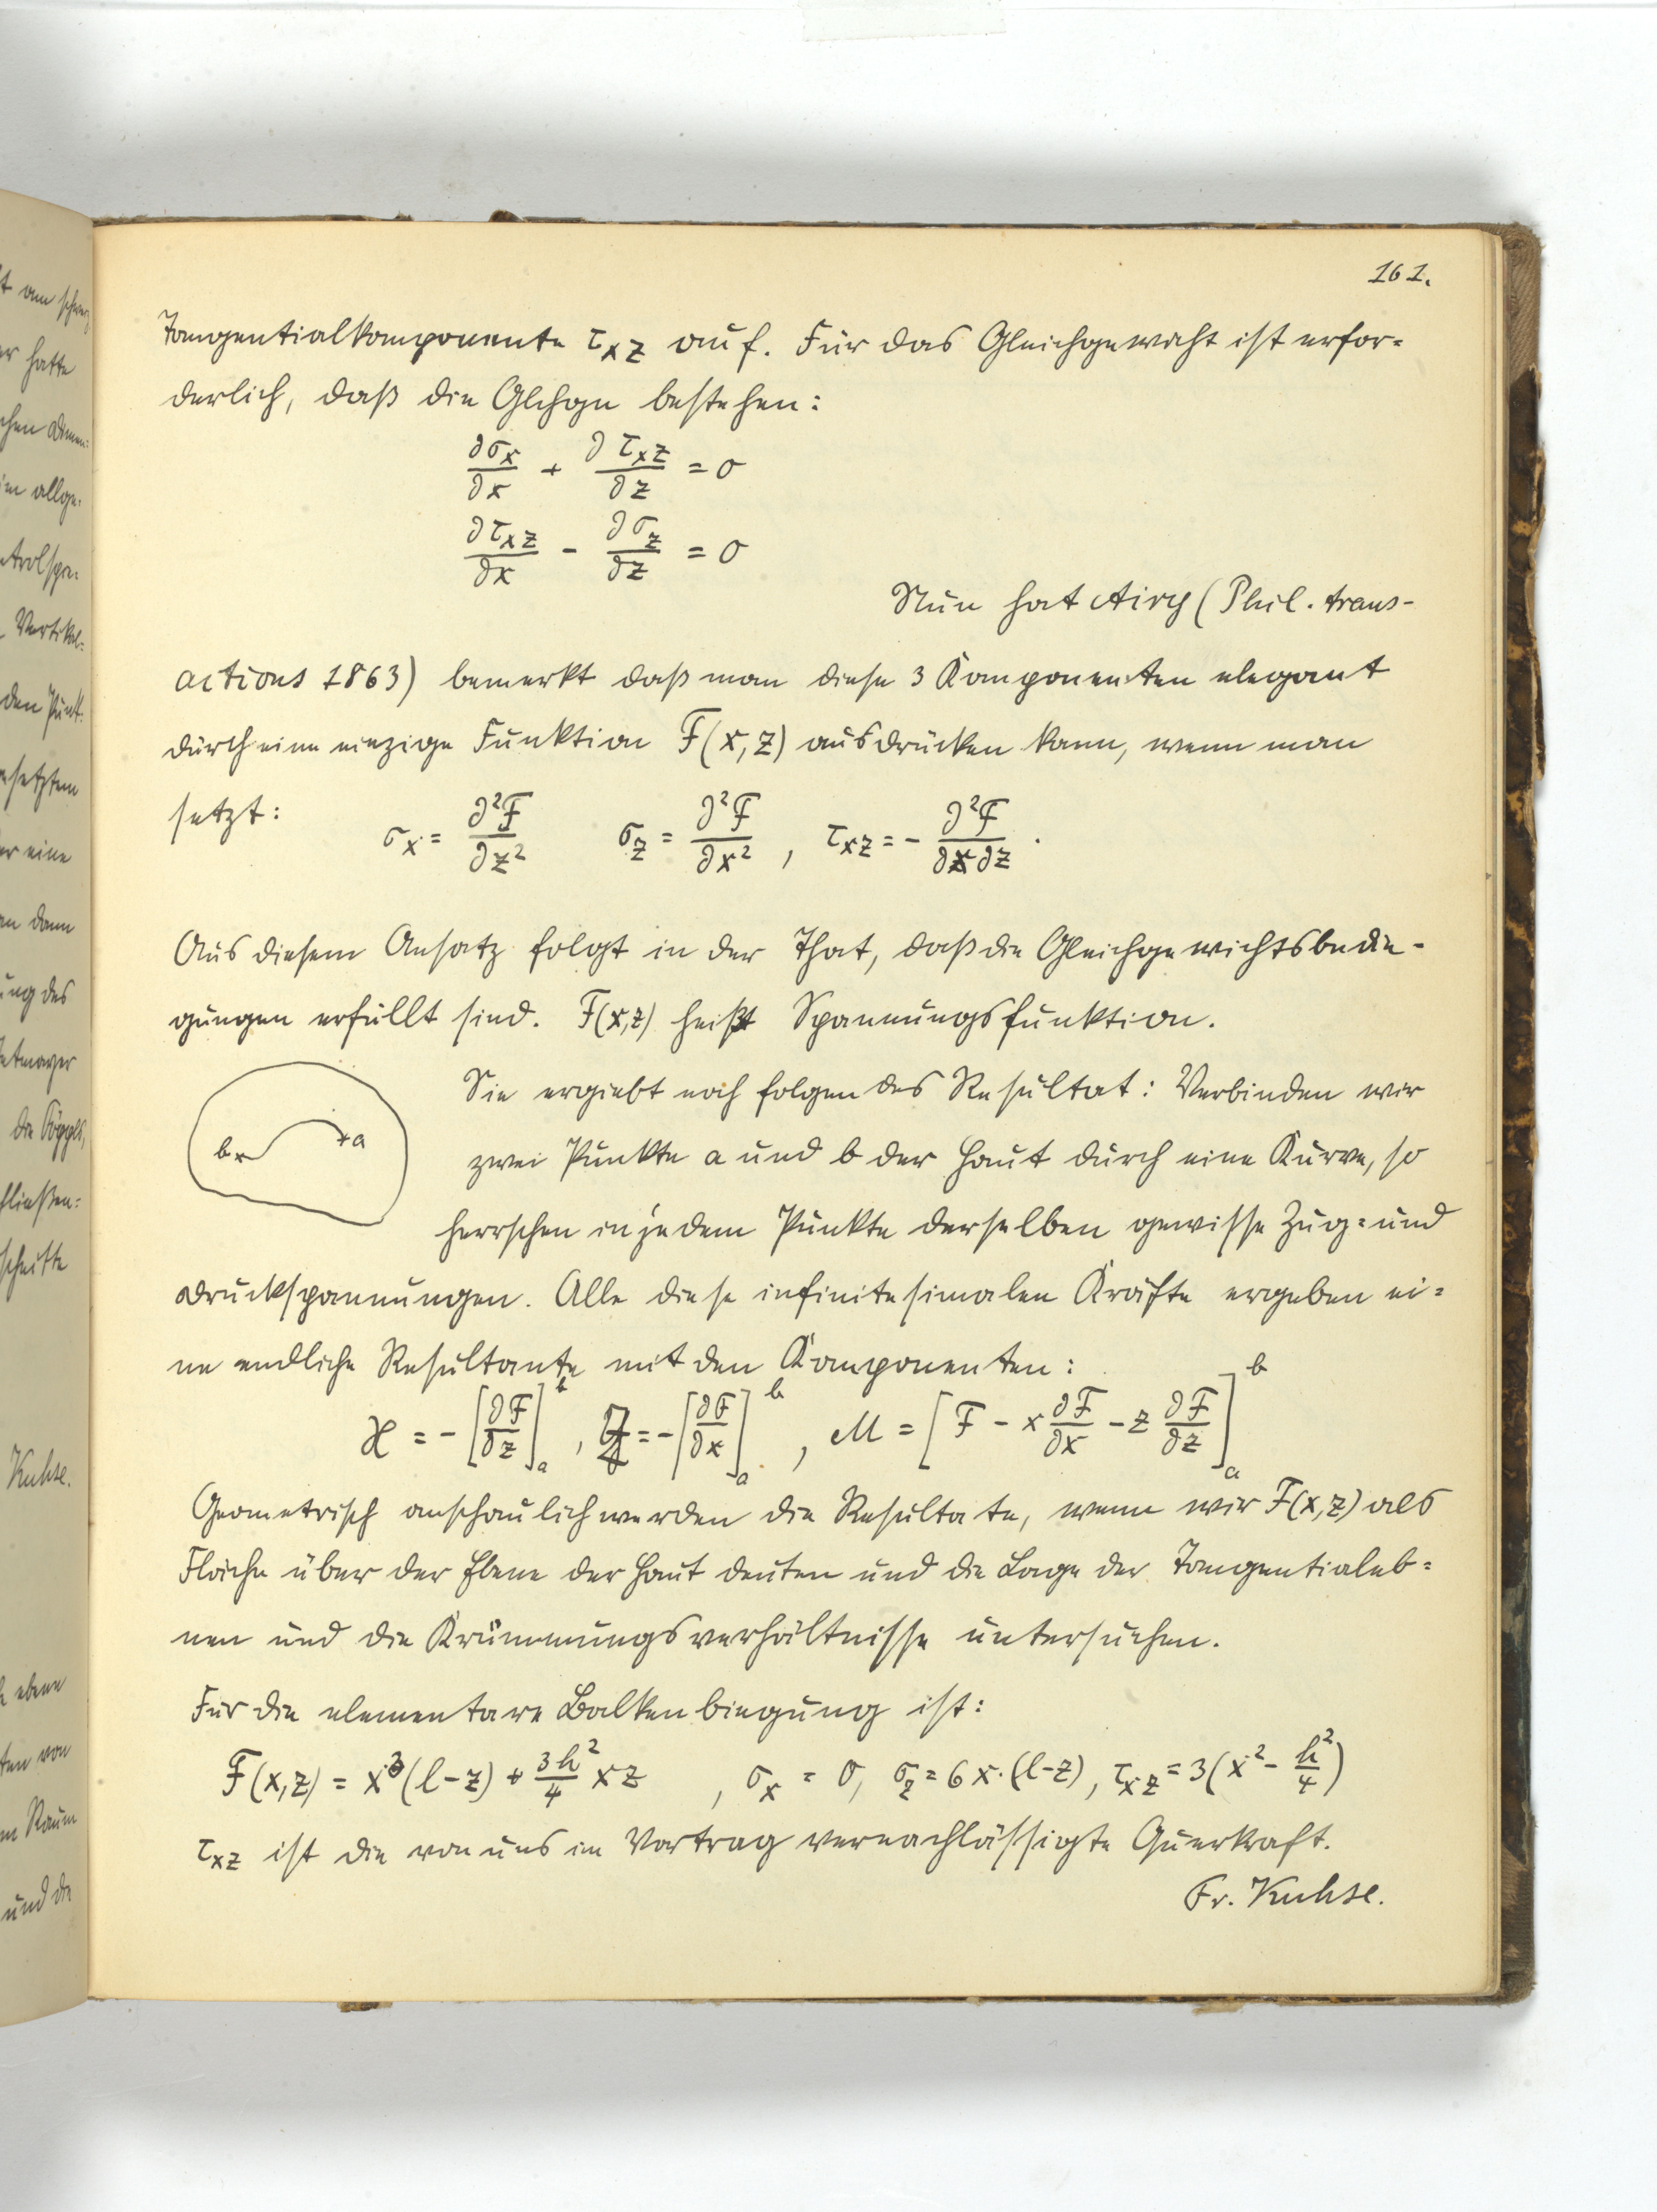 161.
Tangentialkomponente τxz auf. Für das Gleichgewicht ist erfor=
derlich, daß die Glchgn bestehen:
∂σx/∂x + ∂τxz/∂z = 0
∂τxz/∂x - ∂σz/∂z = 0
Nun hat Airy (Phil. trans-
actions 1863) bemerkt daß man diese 3 Komponenten elegant
durch eine einzige Funktion F(x,z) ausdrücken kann, wenn man
setzt: σx = ∂²F/∂z² σz = ∂²F/∂x² , τxz = - ∂²F/∂x∂z .
Aus diesem Ansatz folgt in der That, daß die Gleichgewichtsbedin-
gungen erfüllt sind. F(x,z) heißt Spannungsfunktion.
Sie ergiebt noch folgendes Resultat: Verbinden wir
b a
zwei Punkte a und b der Haut durch eine Kurve, so
herrschen in jedem Punkte derselben gewisse Zug= und
Druckspannungen. Alle diese infinitesimalen Kräfte ergeben ei=
ne endliche Resultante mit den Komponenten:
X = -[∂F/∂z]ₐᵇ , Z = -[∂F/∂x]ₐᵇ , M = [F - x ∂F/∂x - z ∂F/∂z]ₐᵇ
Geometrisch anschaulich werden die Resultate, wenn wir F(x,z) als
Fläche über der Ebene der Haut deuten und die Lage der Tangentialeb=
nen und die Krümmungsverhältnisse untersuchen.
Für die elementare Balkenbiegung ist:
F(x,z) = x³(l-z) + 3h²/4 xz , σx = 0, σz = 6x·(l-z), τxz = 3(x² - h²/4)
τxz ist die von uns im Vortrag vernachlässigte Querkraft.
Fr. Kuhse.